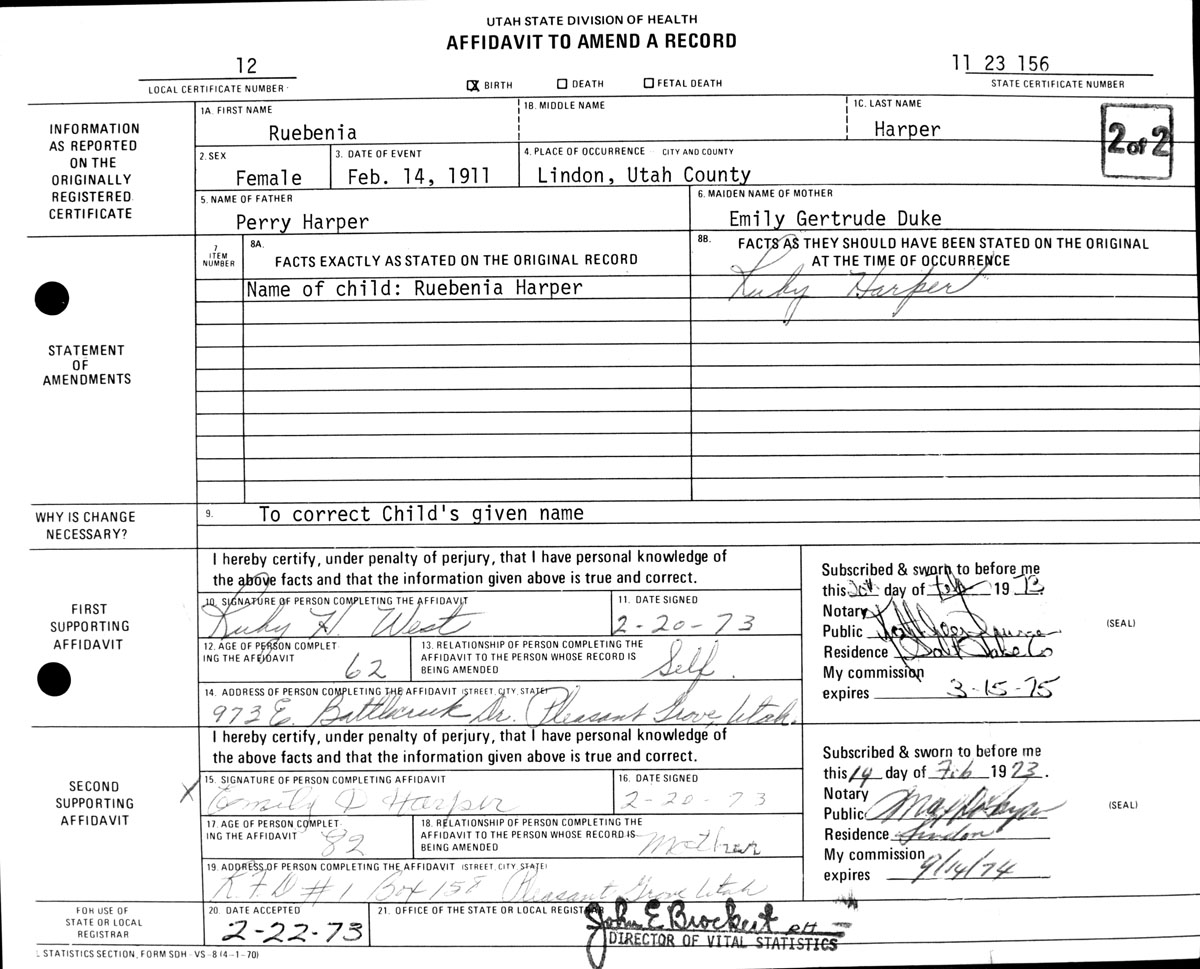 UTAH STATE DIVISION OF HEALTH
AFFIDAVIT TO AMEND A RECORD
12
LOCAL CERTIFICATE NUMBER
X BIRTH
DEATH
FETAL DEATH
11 23 156
STATE CERTIFICATE NUMBER
INFORMATION
AS REPORTED
ON THE
ORIGINALLY
REGISTERED
CERTIFICATE
1A. FIRST NAME
Ruebenia
1B. MIDDLE NAME
1C. LAST NAME
Harper
2 of 2
2. SEX
Female
3. DATE OF EVENT
Feb. 14, 1911
4. PLACE OF OCCURRENCE CITY AND COUNTY
Lindon, Utah County
5. NAME OF FATHER
Perry Harper
6. MAIDEN NAME OF MOTHER
Emily Gertrude Duke
STATEMENT
OF
AMENDMENTS
7
ITEM
NUMBER
8A.
FACTS EXACTLY AS STATED ON THE ORIGINAL RECORD
8B. FACTS AS THEY SHOULD HAVE BEEN STATED ON THE ORIGINAL
AT THE TIME OF OCCURRENCE
Name of child: Ruebenia Harper
Ruby Harper
WHY IS CHANGE
NECESSARY?
9. To correct Child's given name
FIRST
SUPPORTING
AFFIDAVIT
I hereby certify, under penalty of perjury, that I have personal knowledge of
the above facts and that the information given above is true and correct.
10. SIGNATURE OF PERSON COMPLETING THE AFFIDAVIT
Ruby H. West
11. DATE SIGNED
2-20-73
12. AGE OF PERSON COMPLET
ING THE AFFIDAVIT
62
13. RELATIONSHIP OF PERSON COMPLETING THE
AFFIDAVIT TO THE PERSON WHOSE RECORD IS
BEING AMENDED
Self.
14. ADDRESS OF PERSON COMPLETING THE AFFIDAVIT (STREET, CITY, STATE)
973 E. Battlecreek Dr. Pleasant Grove, Utah.
Subscribed & sworn to before me
this 20th day of Feb 19 73
Notary
Public
Residence Salt Lake Co
My commission
expires 3-15-75
(SEAL)
SECOND
SUPPORTING
AFFIDAVIT
I hereby certify, under penalty of perjury, that I have personal knowledge of
the above facts and that the information given above is true and correct.
15. SIGNATURE OF PERSON COMPLETING AFFIDAVIT
X Emily D Harper
16. DATE SIGNED
2-20-73
17. AGE OF PERSON COMPLET
ING THE AFFIDAVIT
82
18. RELATIONSHIP OF PERSON COMPLETING THE
AFFIDAVIT TO THE PERSON WHOSE RECORD IS
BEING AMENDED
Mother
19. ADDRESS OF PERSON COMPLETING THE AFFIDAVIT (STREET, CITY, STATE)
R.F.D #1 Box 158 Pleasant Grove Utah
Subscribed & sworn to before me
this 14 day of Feb 1973.
Notary
Public
Residence Lindon
My commission
expires 9/14/74
(SEAL)
FOR USE OF
STATE OR LOCAL
REGISTRAR
20. DATE ACCEPTED
2-22-73
21. OFFICE OF THE STATE OR LOCAL REGISTRAR
John E Brockert RH
DIRECTOR OF VITAL STATISTICS
STATISTICS SECTION, FORM SDH-VS-8 (4-1-70)